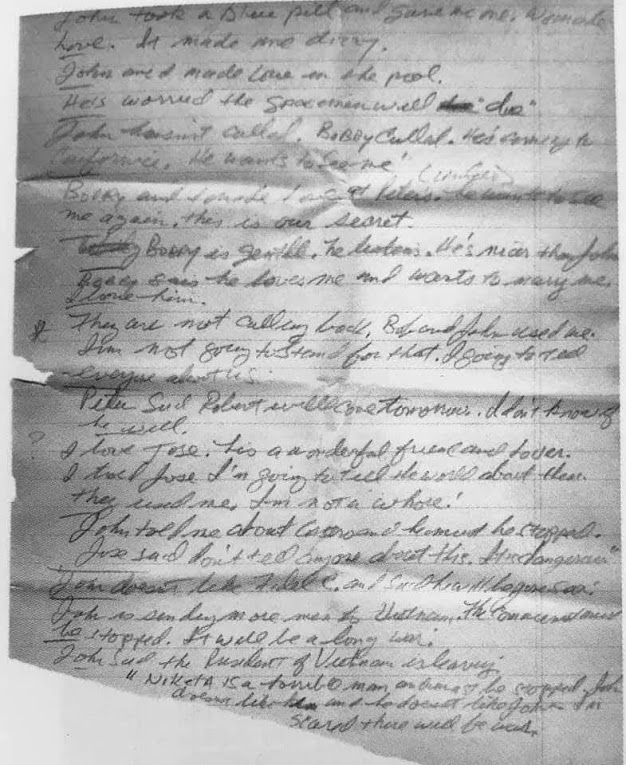 John took a blue pill and gave me one. We made
Love. It made me dizzy.
John and I made Love in the pool.
He's worried the spacemen will "die"
John hasn't called. Bobby Called. He's coming to
California. He wants to see me!
Bobby and I made Love at Peters. he wants to see
me again. this is our secret.
Bobby is gentle. he listens. He's nicer than John
Bobby says he loves me and wants to marry me.
I love him.
They are not calling back. Bob and John used me.
I'm not going to stand for that. I going to tell
everyone about us.
Peter Said Robert will come tomorrow. I don't know if
he will.
?
I love Jose. is a wonderful friend and Lover.
I told Jose I'm going to tell the world about them.
they used me. I'm not a whore!
John told me about Castro and must be stopped.
Jose said don't tell anyone about this. It is dangerous"
John doesn't like Fidel C. and Said he will be gone soon.
John is sending more men to Vietnam. The must
be stopped. It will be a long war.
John Said the President of Vietnam is leaving
"NIKETA IS a terrible man and must be stopped. John
doesn't like him and he doesn't like John. I'm
scared there will be war.